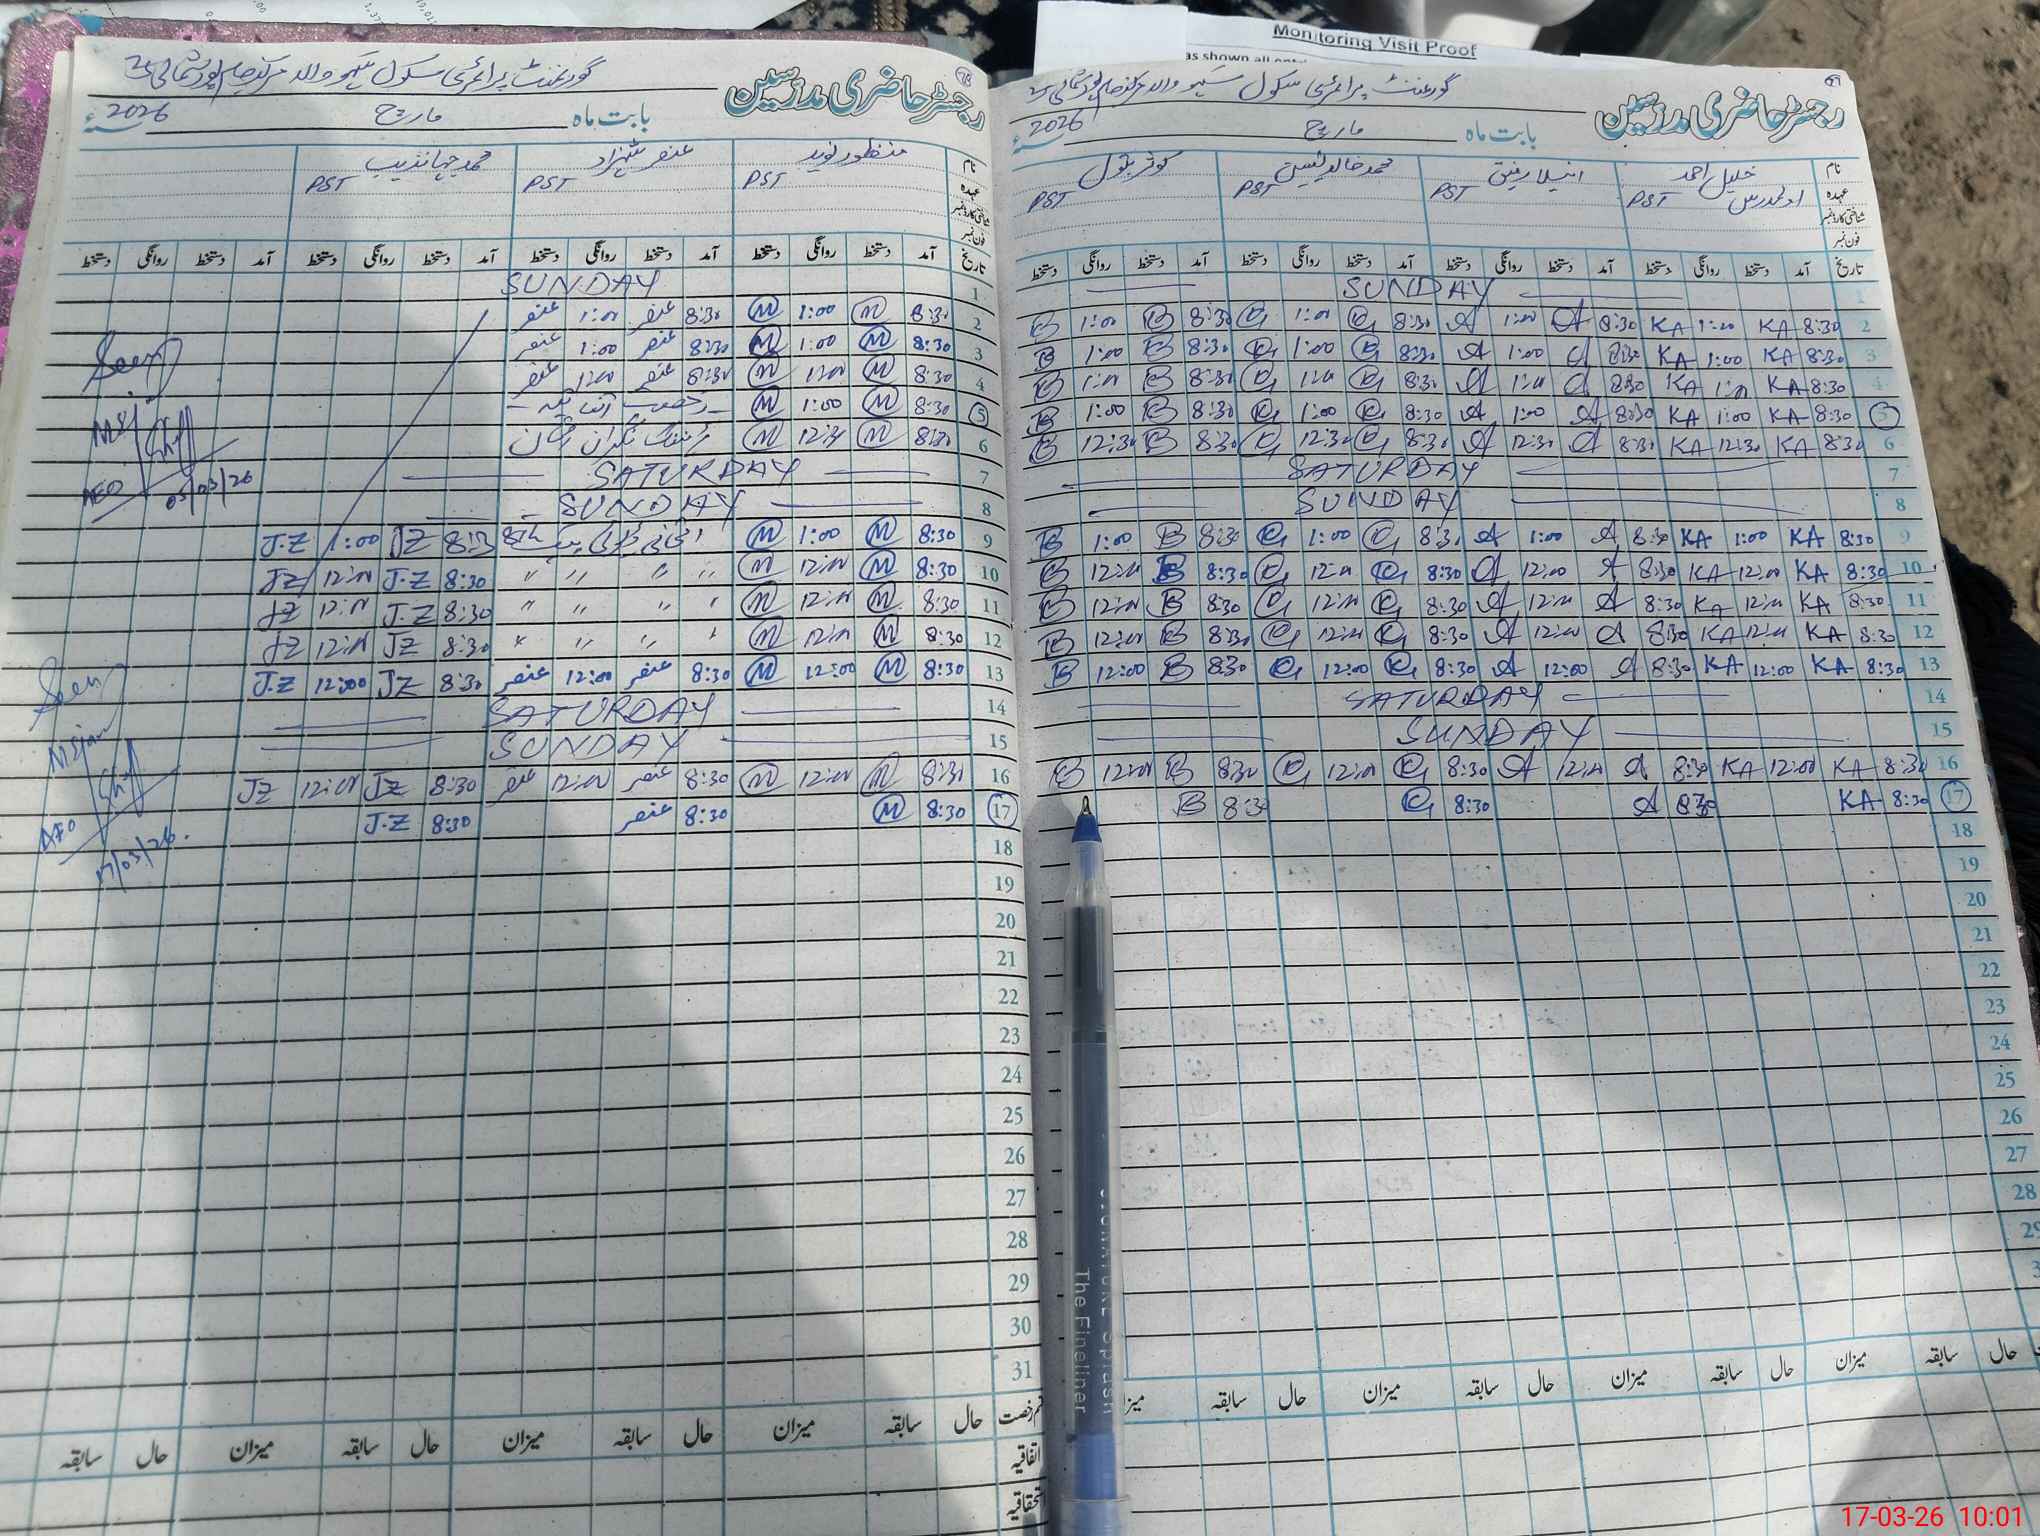 Monitoring Visit Proof
رجسٹر حاضری مدرسین
گورنمنٹ پرائمری سکول
بابت ماہ مارچ 2026
نام خلیل احمد محمد خالد کوثر بتول
عہدہ PST PST PST PST
شناختی کارڈ نمبر
فون نمبر
تاریخ آمد دستخط روانگی دستخط آمد دستخط روانگی دستخط آمد دستخط روانگی دستخط آمد دستخط روانگی دستخط
1 SUNDAY
2 8:30 KA 1:00 KA 8:30 A 1:00 A 8:30 1:00 8:30 B 1:00 B
3 8:30 KA 1:00 KA 8:30 A 1:00 A 8:30 1:00 8:30 B 1:00 B
4 8:30 KA 1:00 KA 8:30 A 1:00 A 8:30 1:00 8:30 B 1:00 B
5 8:30 KA 1:00 KA 8:30 A 1:00 A 8:30 1:00 8:30 B 1:00 B
6 8:30 KA 12:30 KA 8:30 A 12:30 A 8:30 12:30 8:30 B 12:30 B
7 SATURDAY
8 SUNDAY
9 8:30 KA 1:00 KA 8:30 A 1:00 A 8:30 1:00 8:30 B 1:00 B
10 8:30 KA 12:00 KA 8:30 A 12:00 A 8:30 12:00 8:30 B 12:00 B
11 8:30 KA 12:00 KA 8:30 A 12:00 A 8:30 12:00 8:30 B 12:00 B
12 8:30 KA 12:00 KA 8:30 A 12:00 A 8:30 12:00 8:30 B 12:00 B
13 8:30 KA 12:00 KA 8:30 A 12:00 A 8:30 12:00 8:30 B 12:00 B
14 SATURDAY
15 SUNDAY
16 8:30 KA 12:00 KA 8:30 A 12:00 A 8:30 12:00 8:30 B 12:00 B
17 8:30 KA 8:30 A 8:30 8:30 B
18
19
20
21
22
23
24
25
26
27
28
29
3
حال سابقہ میزان حال سابقہ میزان حال سابقہ میزان حال سابقہ
رجسٹر حاضری مدرسین
گورنمنٹ پرائمری سکول
بابت ماہ مارچ 2026
نام منظور نوید عنصر شہزاد محمد جہانزیب
عہدہ PST PST PST
شناختی کارڈ نمبر
فون نمبر
تاریخ آمد دستخط روانگی دستخط آمد دستخط روانگی دستخط آمد دستخط روانگی دستخط آمد دستخط روانگی دستخط
1 SUNDAY
2 8:30 M 1:00 M 8:30 عنصر 1:00 عنصر
3 8:30 M 1:00 M 8:30 عنصر 1:00 عنصر
4 8:30 M 1:00 M 8:30 عنصر 1:00 عنصر
5 8:30 M 1:00 M رخصت اتفاقیہ
6 8:30 M 12:30 M
7 SATURDAY
8 SUNDAY
9 8:30 M 1:00 M 8th 8:30 JZ 1:00 J.Z
10 8:30 M 12:00 M 〃 〃 〃 〃 8:30 J.Z 12:00 JZ
11 8:30 M 12:00 M 〃 〃 〃 〃 8:30 J.Z 12:00 JZ
12 8:30 M 12:00 M 〃 〃 〃 〃 8:30 JZ 12:00 JZ
13 8:30 M 12:00 M 8:30 عنصر 12:00 عنصر 8:30 JZ 12:00 J.Z
14 SATURDAY
15 SUNDAY
16 8:30 M 12:00 M 8:30 عنصر 12:00 عنصر 8:30 JZ 12:00 JZ
17 8:30 M 8:30 عنصر 8:30 J.Z
18
19
20
21
22
23
24
25
26
27
28
29
30
31
Seen
AEO
05/03/26
Seen
AEO
17/03/26.
قسم رخصت حال سابقہ میزان حال سابقہ میزان حال سابقہ میزان حال سابقہ
اتفاقیہ
استحقاقیہ
SIGNATURE Splash
The Fineliner
17-03-26 10:01